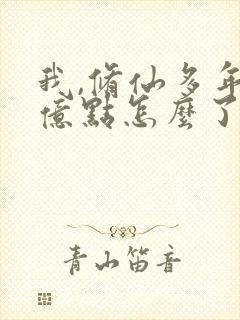 我,脩仙多年
億點怎麼了
青山笛音